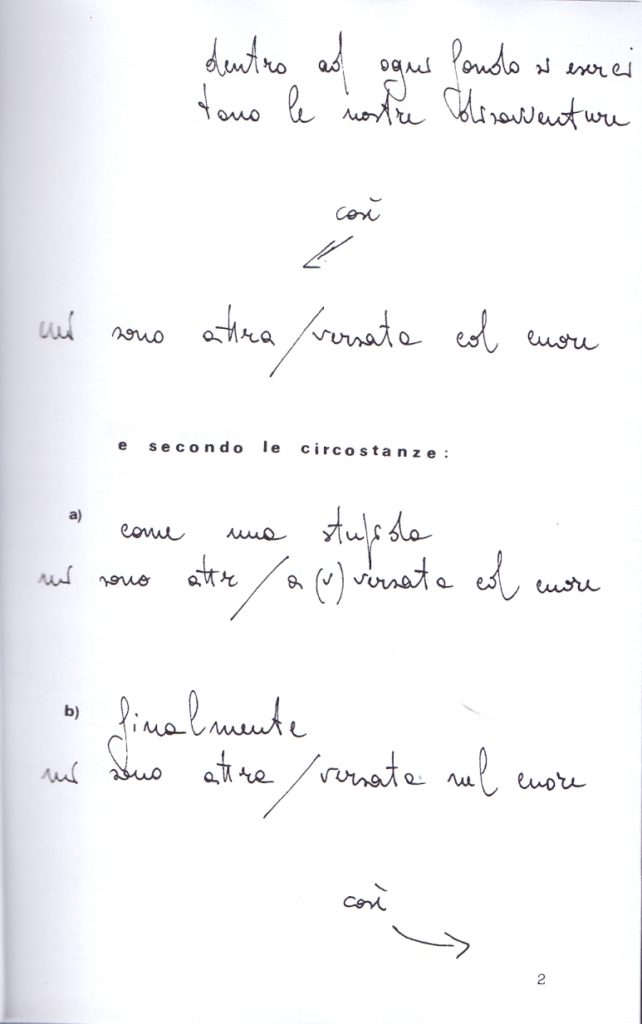 dentro ad ogni fondo si eserci
tano le nostre disavventure
così
mi sono attra/versata col cuore
e secondo le circostanze:
a) come una stupida
mi sono attr/a(v)versata col cuore
b) finalmente
mi sono attra/versata nel cuore
così
2